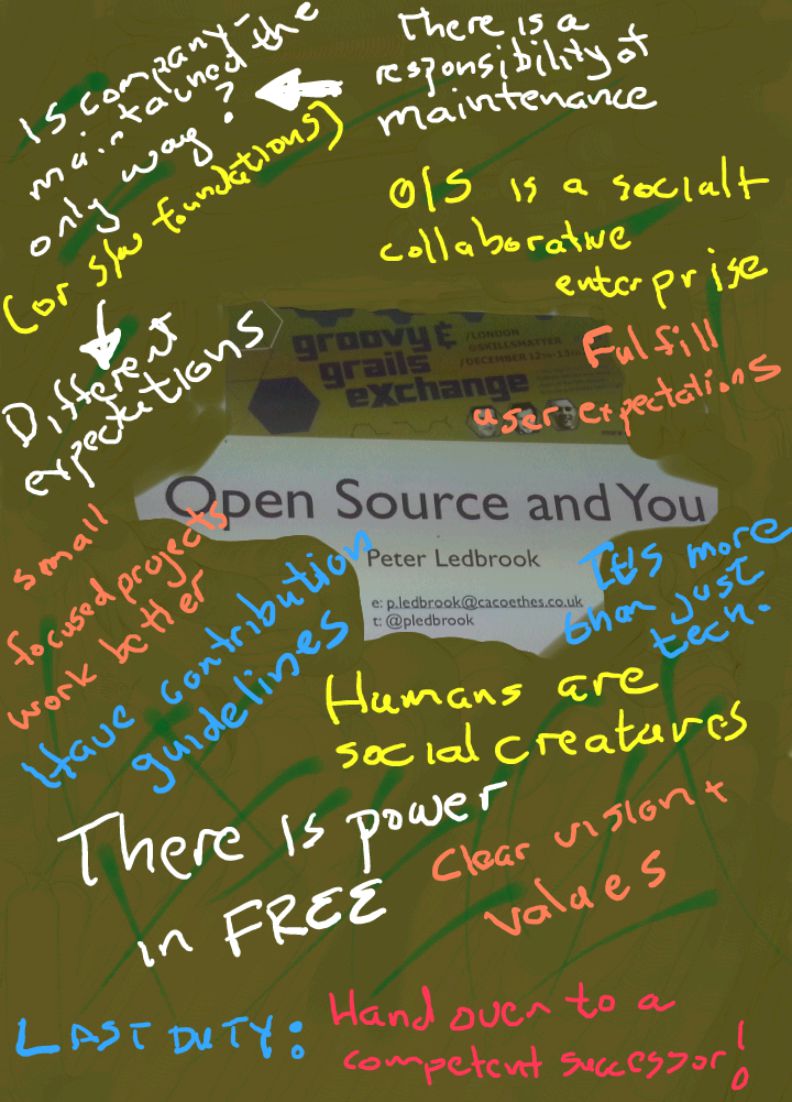 Is company-
maintained the
only way?
(or s/w foundations)
There is a
responsibility of
maintenance
O/S is a social +
collaborative
enterprise
Different
expectations
groovy &
grails
eXchange
/LONDON
@SKILLSMATTER
/DECEMBER 12th-13th
Fulfill
user expectations
Open Source and You
Peter Ledbrook
e: p.ledbrook@cacoethes.co.uk
t: @pledbrook
small
focused projects
work better
Have contribution
guidelines
It's more
than just
tech.
Humans are
social creatures
There is power
in FREE
Clear vision +
values
LAST DUTY:
Hand over to a
competent successor!